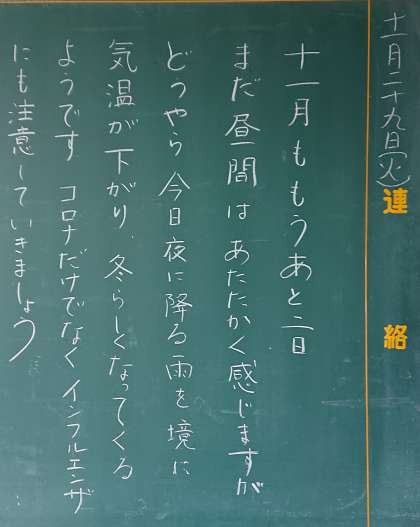 十一月二十九日(火)
連絡
十一月ももうあと二日
まだ昼間はあたたかく感じますが
どうやら今日夜に降る雨を境に
気温が下がり、冬らしくなってくる
ようです コロナだけでなくインフルエンザ
にも注意していきましょう